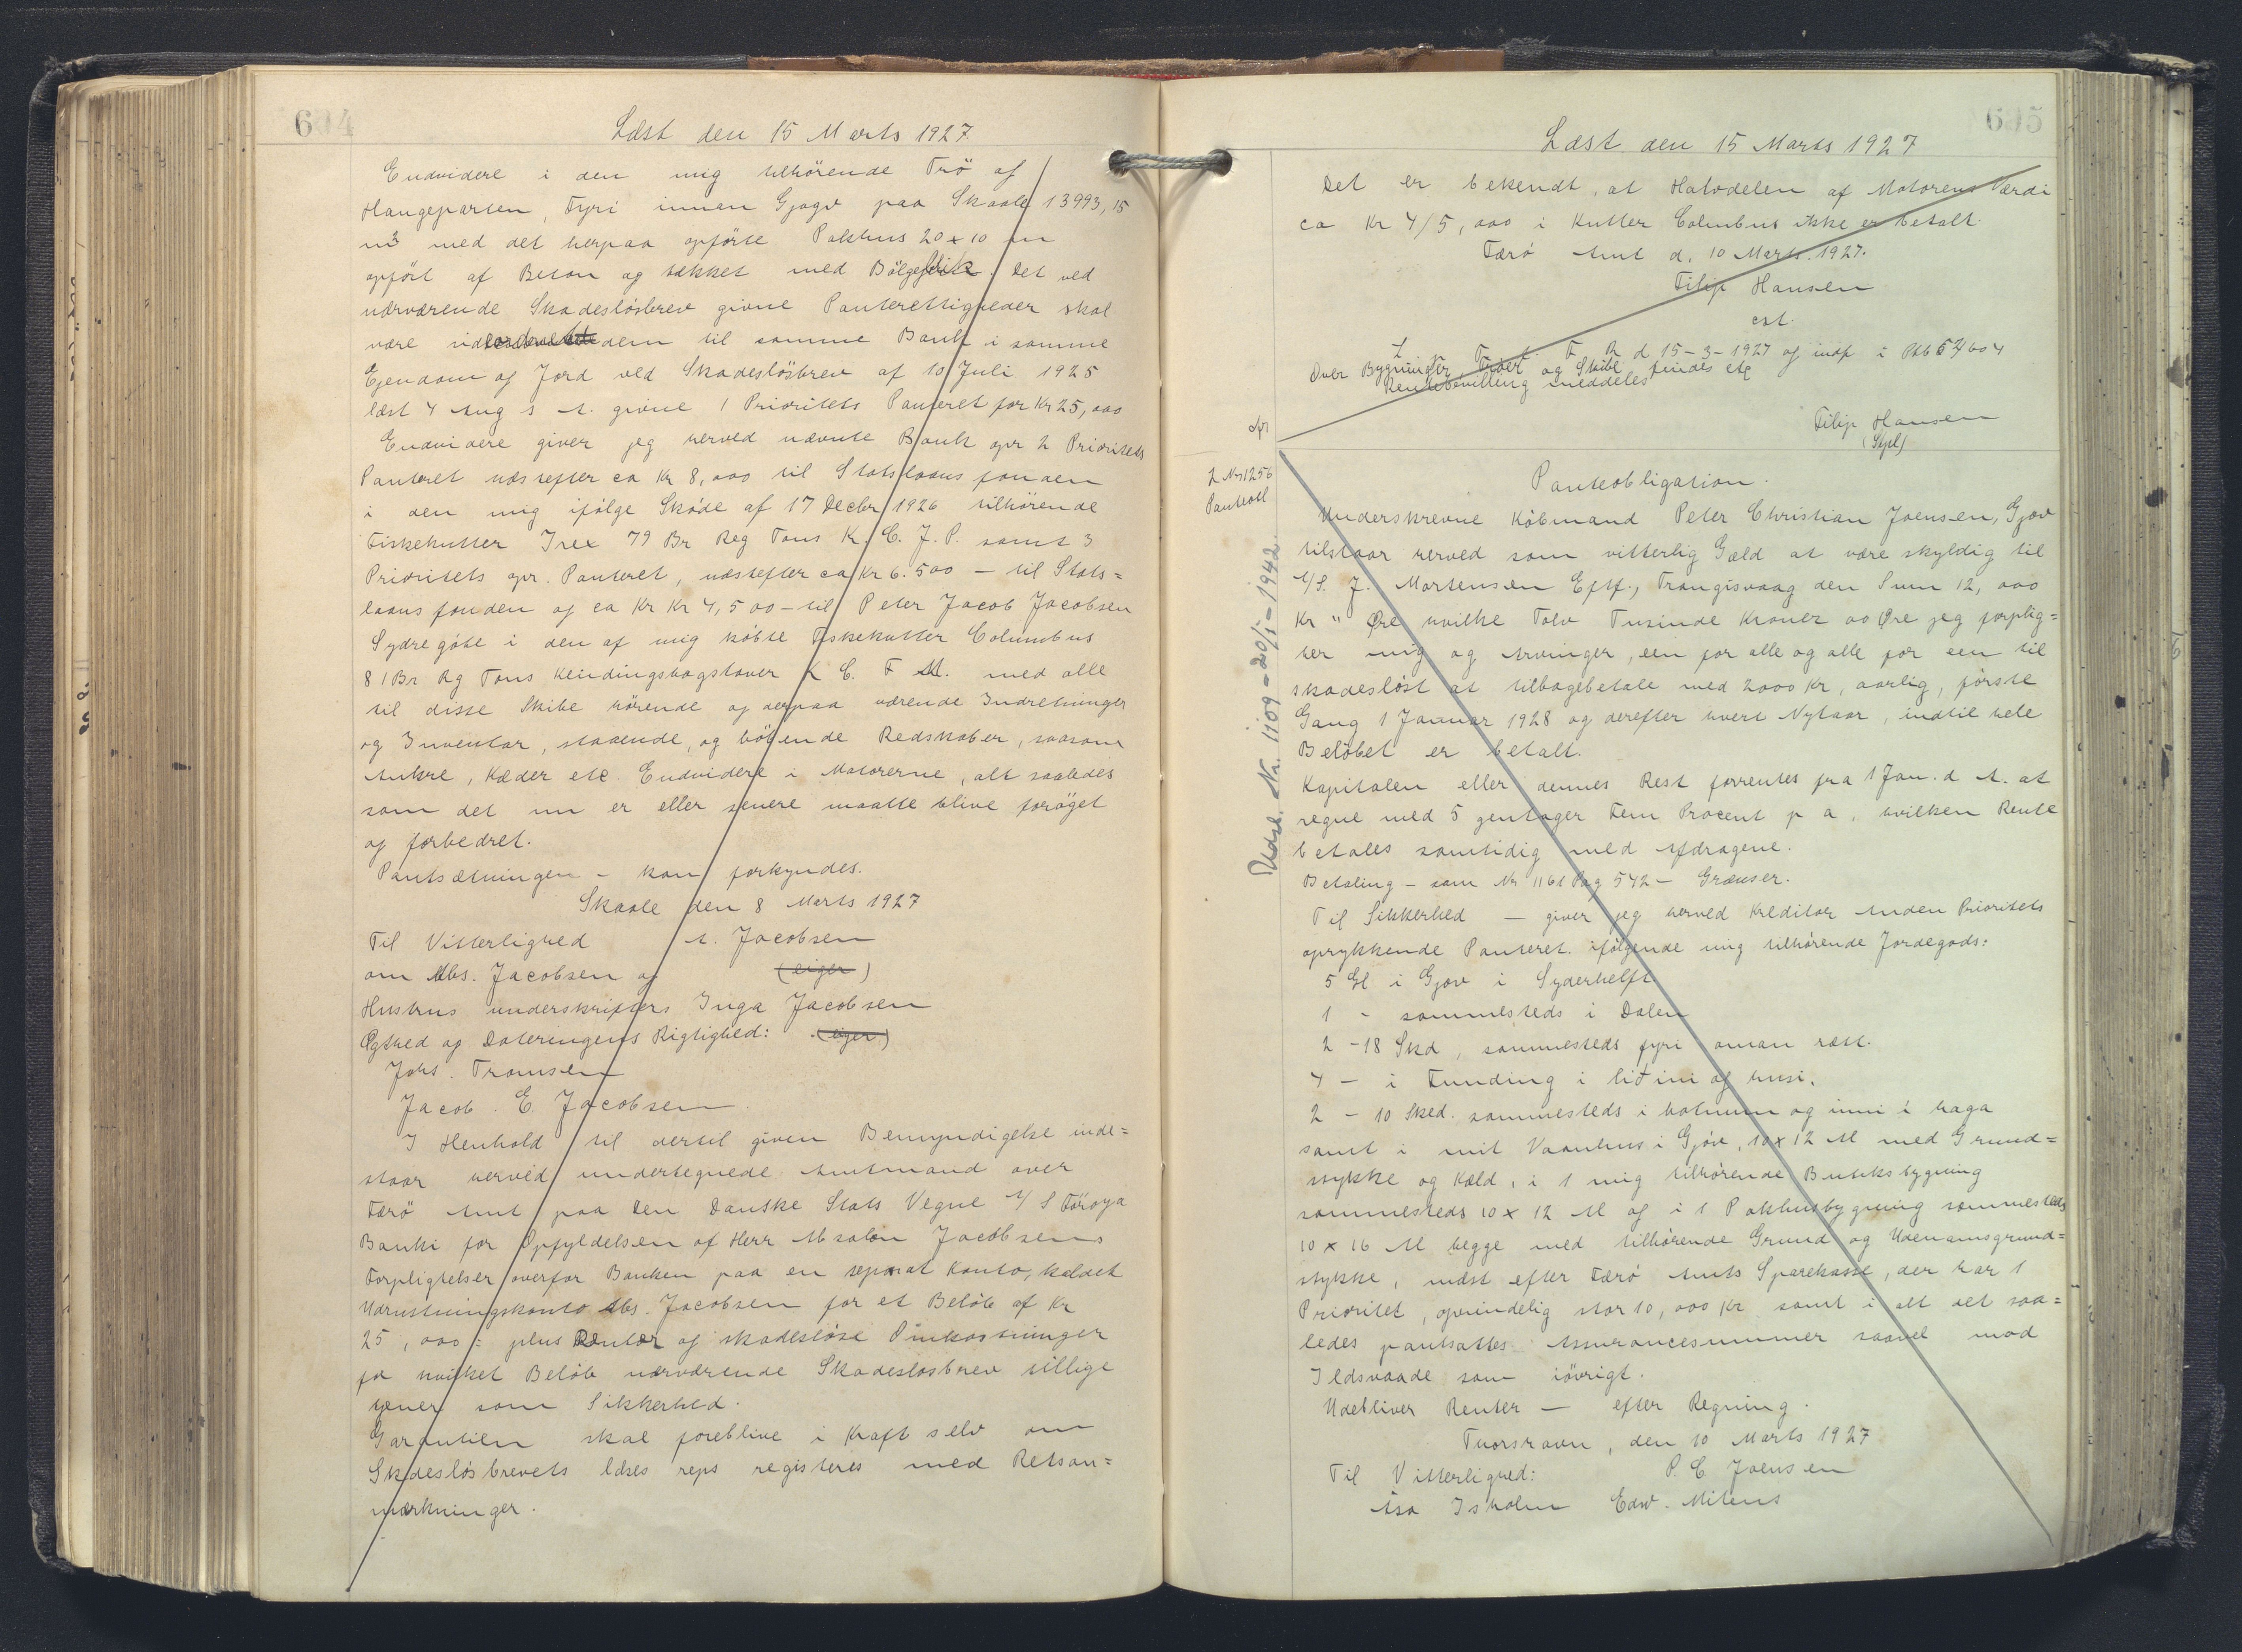 604
Læst den 15 Marts 1927
Endvidere i den mig tilhörende Trö af
Haugeparten, Fyri innan Gjogv paa Skaale 13993,15
m² med det herpaa opförte Pakhus 20 x 10 m
opfört af Beton og tækket med Bölgeblik. Det ved
nærværende Skadeslösbrev givne Panterettigheder skal
være dem til samme Bank i samme
Ejendom og Jord ved Skadeslösbrev af 10 Juli 1925
læst 4 Aug s A. givne 1 Prioritets Panteret for Kr 25,000
Endvidere giver jeg herved nævnte Bank opr 2 Prioritets
Panteret næstefter ca Kr 8,000 til Statslaansfonden
i den mig ifölge Sköde af 17 Decbr 1926 tilhörende
Fiskekutter Irex 79 Br Reg Tons K. C. J. P. samt 3
Prioritets opr. Panteret, næstefter ca Kr 6.500 — til Stats=
laansfonden og ca Kr Kr 4,500 - til Peter Jacob Jacobsen
Sydregöte i den af mig köbte Fiskekutter Columbus
81 Br Rg Tons Kendingsbogstaver K C. F M. med alle
til disse Skibe hörende og derpaa værende Indretninger
og Inventar, staaende, og löbende Redskaber, saasom
Ankre, Kæder etc. Endvidere i Motorerne, alt saaledes
som det nu er eller senere maatte blive foröget
og forbedret.
Pantsætningen - kan forkyndes.
Skaale den 8 Marts 1927
Til Vitterlighed A. Jacobsen
om Abs. Jacobsen og (eiger)
Hustrus underskrifters Inga Jacobsen
Ægthed og Dateringens Rigtighed: (eiger)
Johs. Tromsen
Jacob. E. Jacobsen.
I Henhold til dertil given Bemyndigelse inde=
staar herved undertegnede Amtmand over
Færö Amt paa Den Danske Stats Vegne A/S Föroya
Banki for Opfyldelsen af Herr Absalon Jacobsens
Forpligtelser overfor Banken paa en separat Konto, kaldet
Udrustningskonto Abs. Jacobsen for et Belöb af Kr
25,000 = plus Renter og skadeslöse Omkostninger
for hvilket Belöb nærværende Skadeslösbrev tillige
tjener som Sikkerhed.
Garantien skal forblive i Kraft selv om
Skadeslösbrevets læses reps registeres med Retsan=
mærkninger.
605
Læst den 15 Marts 1927
Det er bekendt, at Halvdelen af Motorens Værdi
ca Kr 4/5,000 i Kutter Columbus ikke er betalt.
Færö Amt d. 10 Marts. 1927.
Filip Hansen
cst.
L. F R d 15-3-1927 og indf i Pbb 54 604
Over Bygninger, Tröer og Skibe findes etc
Rentebevilling meddeles
Filip Hansen
(Stpl)
L Nr 1256
Panteobl
Udsl. Nr. 1109 - 20/5 - 1942.
Panteobligation.
Underskrevne Köbmand Peter Christian Joensen, Gjov
tilstaar herved som vitterlig Gæld at være skyldig til
A/S. J. Mortensen Eftf., Trangisvaag den Sum 12,000
Kr " Øre hvilke Tolv Tusinde Kroner 00 Øre jeg forplig=
ter mig og Arvinger, een for alle og alle for een til
skadeslöst at tilbagebetale med 2000 Kr, aarlig, förste
Gang 1 Januar 1928 og derefter hvert Nytaar, indtil hele
Belöbet er betalt.
Kapitalen eller dennes Rest forrentes fra 1 Jan. d A. at
regne med 5 gentager Fem Procent p a, hvilken Rente
betales samtidig med Afdragene.
Betaling - som Nr 1161 Pag 542 - Grænser.
Til Sikkerhed — giver jeg herved Kreditor Anden Prioritets
oprykkende Panteret ifölgende mig tilhörende Jordegods:
5 Gl i Gjov i Syderhelft
1 - sammesteds i Dalen
2 - 18 Skd, sammesteds fyri oman ræt.
4 - i Funding i liðini af husi.
2 - 10 Sked. sammesteds i botnum og inni i haga
samt i mit Vaanhus i Gjöv, 10 x 12 M med Grund=
stykke og Kæld, i 1 mig tilhörende Butiksbygning
sammesteds 10 x 12 M og i 1 Pakhusbygning sammesteds
10 x 16 M begge med tilhörende Grund og Udenomsgrund=
stykke, næst efter Færö Amts Sparekasse, der har 1
Prioritet, oprindelig stor 10,000 Kr samt i alt det saa=
ledes pantsattes Assurancesummer saavel mod
Ildsvaade som iövrigt.
Udebliver Renter — efter Regning.
Tvorshavn, den 10 Marts 1927
Til Vitterlighed: P. C Joensen
Åsa Isholm Edw. Mitens